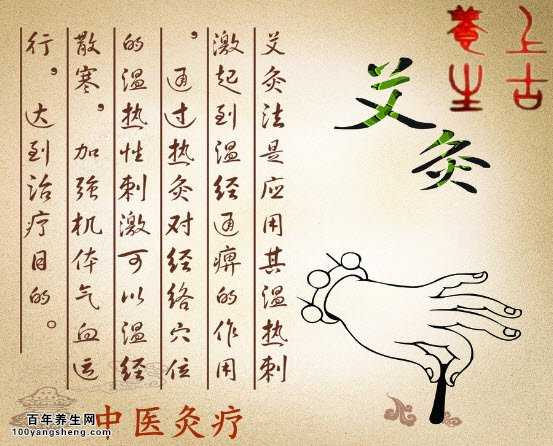 上古
養生
艾灸
艾灸法是应用其温热刺
激起到温经通痹的作用
，通过热灸对经络穴位
的温热性刺激可以温经
散寒，加强机体气血运
行，达到治疗目的。
中医灸疗
百年养生网
100yangsheng.com